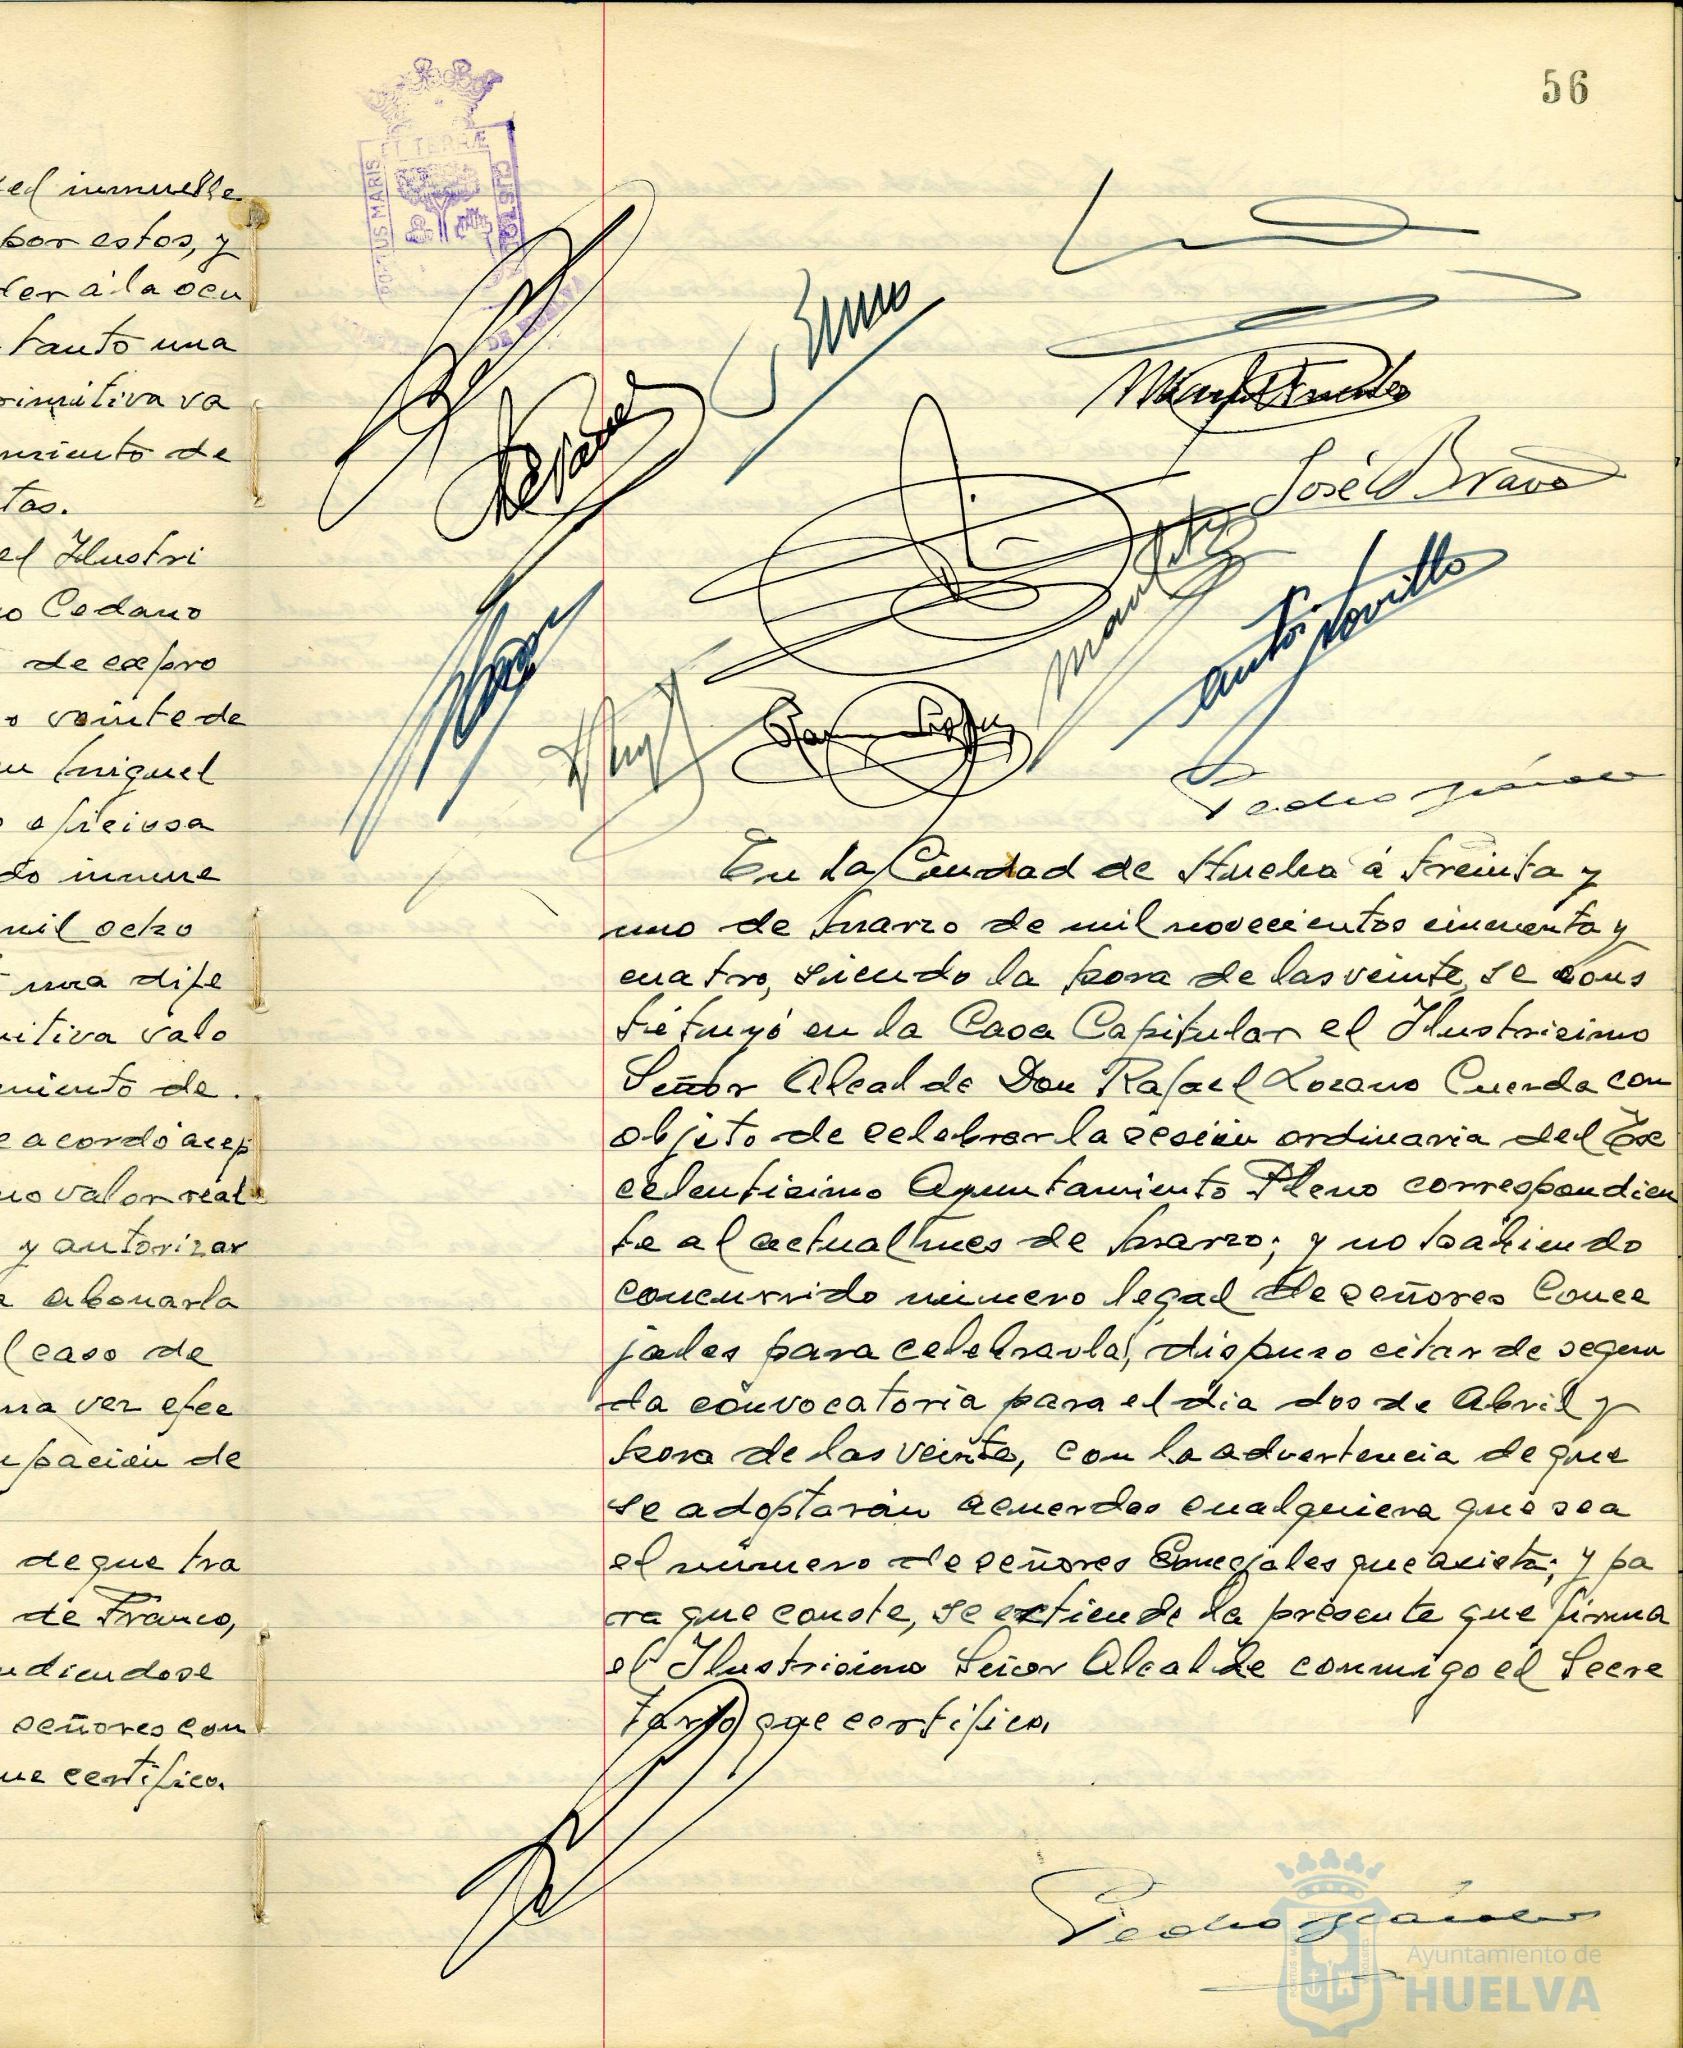 56
PORTUS MARIS ET TERRÆ CUSTODIA
DE HUELVA
el inmueble
por estos, y
der á la ocu
tanto una
rimitiva va
miento de
tas.
el Ilustri
o Cedano
de expro
o veinte de
n Miguel
o oficiosa
do inmue
mil ocho
una dife
mitiva valo
miento de
e acordó acep
mo valor real
y autorizar
a abonarla
l caso de
na vez efec
upación de
de que tra
de Franco,
ndiendose
señores con
ue certifico.
José Bravo
Antº. Novillo
Pedro
En la Ciudad de Huelva á treinta y
uno de Marzo de mil novecientos cincuenta y
cuatro, siendo la hora de las veinte, se cons
tituyó en la Casa Capitular el Ilustrisimo
Señor Alcalde Don Rafael Lozano Cuerda con
objeto de celebrar la sesión ordinaria del Ex
celentisimo Ayuntamiento Pleno correspondien
te al actual mes de Marzo; y no habiendo
concurrido número legal de señores Conce
jales para celebrarla, dispuso citar de segun
da convocatoria para el dia dos de Abril y
hora de las veinte, con la advertencia de que
se adoptarán acuerdos cualquiera que sea
el número de señores Concejales que asista; y pa
ra que conste, se extiende la presente que firma
el Ilustrisimo Señor Alcalde conmigo el Secre
tario que certifico.
Pedro
Ayuntamiento de
HUELVA